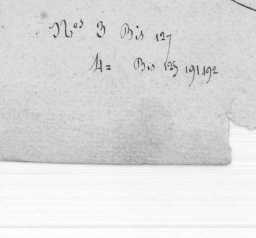 Nos 3 Bis 127
4= Bis 125 191.192